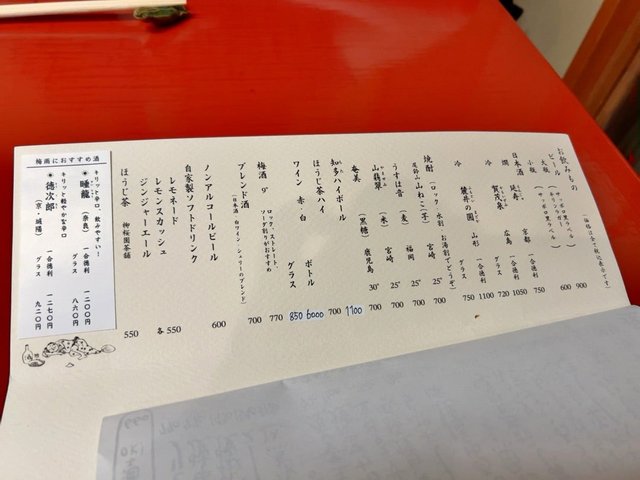 お飲みもの
(価格は全て税込表示です)
ビール
大瓶 (サッポロ黒ラベル) 900
小瓶 (サッポロ黒ラベル) 600
日本酒
燗 延寿 京都 小徳利 750
一合徳利 1050
賀茂泉 広島 グラス 720
冷 一合徳利 1100
冷 麓井の圓 山形 グラス 750
焼酎 (ロック 水割 お湯割でどうぞ)
尾鈴山 山ねこ(芋) 宮崎 25° 700
うすは音(麦) 福岡 25° 700
山翡翠(米) 宮崎 25° 700
奄美(黒糖) 鹿児島 30° 700
知多ハイボール 1100
ほうじ茶ハイ 700
ワイン 赤・白 ボトル 6000
グラス 850
梅酒 9° ロック ストレート
ソーダ割りがおすすめ 770
ブレンド酒 (日本酒 白ワイン・シェリーのブレンド) 700
ノンアルコールビール 600
自家製ソフトドリンク
レモネード
レモンスカッシュ
ジンジャーエール 各 550
ほうじ茶 柳桜園茶舗 550
梅雨におすすめ酒
キリッと辛口、飲みやすい!
睡龍(奈良) 一合徳利 一二〇〇円
グラス 八六〇円
キリッと軽やかな辛口
徳次郎(京・城陽) 一合徳利 一二七〇円
グラス 九二〇円